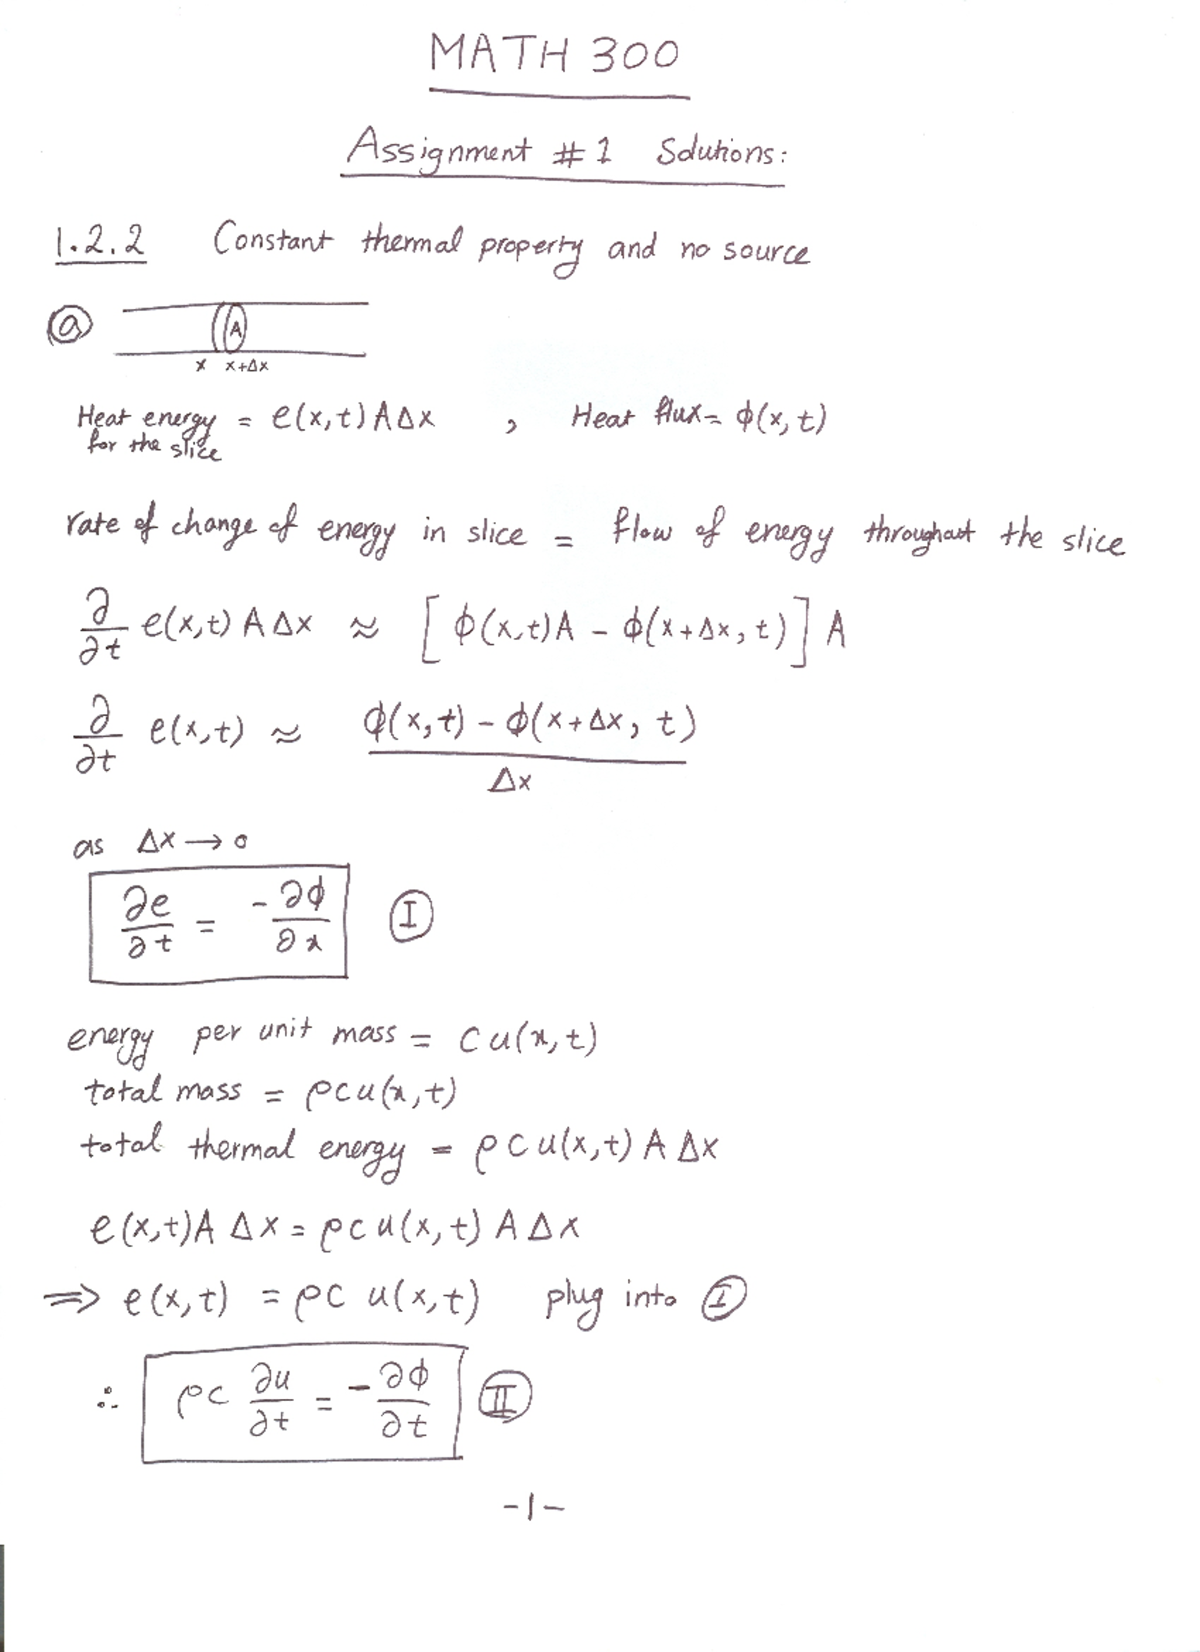 MATH 300
Assignment #1 Solutions:
1.2.2 Constant thermal property and no source
ⓐ
A
x x+Δx
Heat energy for the slice = e(x,t) A Δx , Heat flux = ϕ(x,t)
rate of change of energy in slice = flow of energy throughout the slice
∂/∂t e(x,t) A Δx ≈ [ϕ(x,t)A - ϕ(x+Δx, t)] A
∂/∂t e(x,t) ≈ (ϕ(x,t) - ϕ(x+Δx, t))/Δx
as Δx → 0
∂e/∂t = -∂ϕ/∂x Ⓘ
energy per unit mass = c u(x,t)
total mass = ρcu(x,t)
total thermal energy = ρcu(x,t) A Δx
e(x,t)A Δx = ρcu(x,t) A Δx
⇒ e(x,t) = ρc u(x,t) plug into Ⓘ
∴ ρc ∂u/∂t = -∂ϕ/∂t Ⅱ
-1-